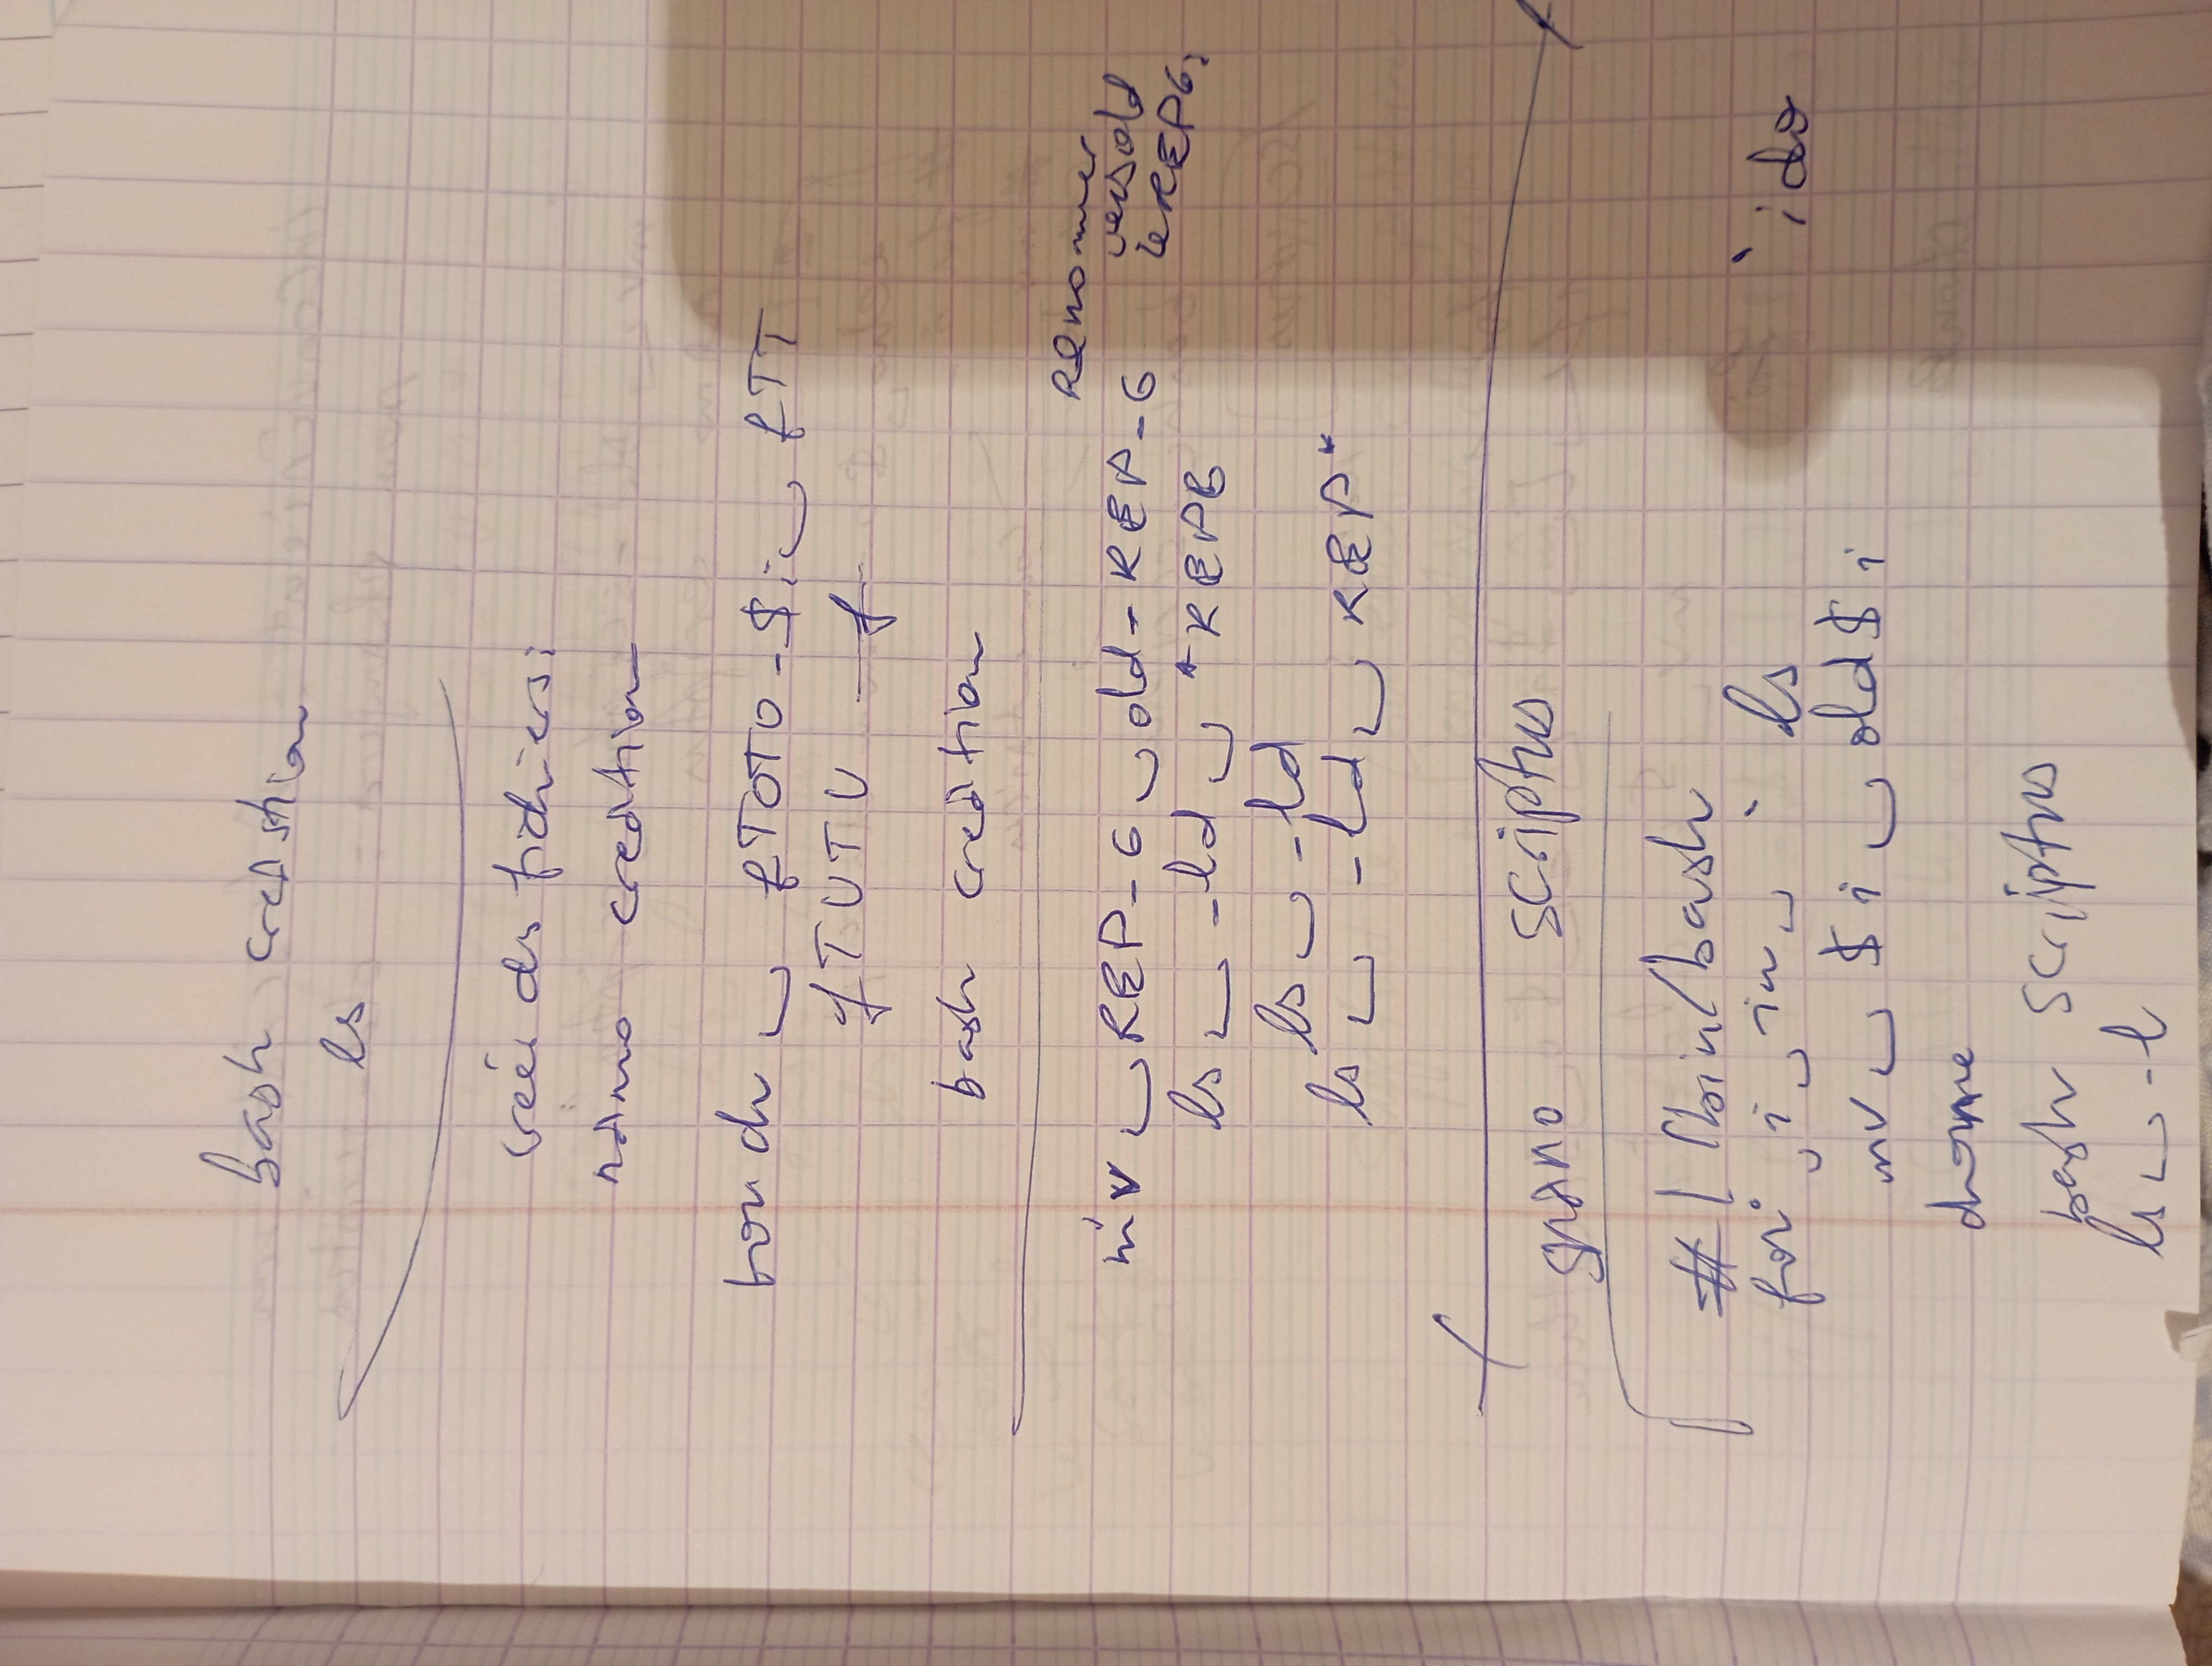 bash creation
ls
créer des fichiers:
nano creation
touch ␣ fTOTO-$i ␣ fTT
fTUTU
bash creation
renommer
mv ␣ REP-6 ␣ old-REP-6 vers old
le REP6;
ls ␣ -ld ␣ *REP6
ls ␣ -ld
ls ␣ -ld ␣ REP*
nano scriptus
#!/bin/bash
for ␣ i ␣ in ␣ `ls `; do
mv ␣ $i ␣ old$i
done
bash scriptus
ls ␣ -l